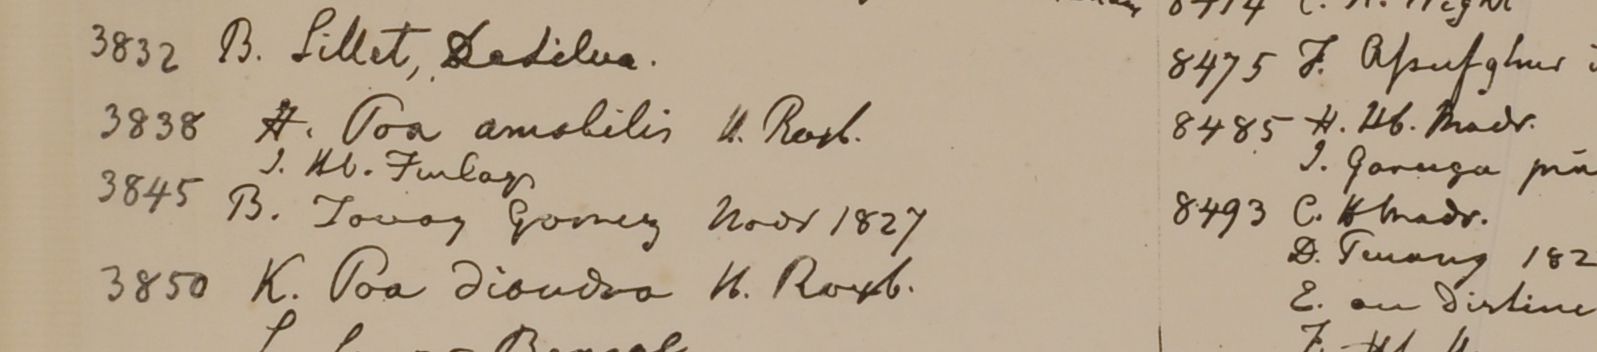 3832 B. Sillet, DeSilva.
3838 H. Poa amabilis H. Roxb.
I. Hb. Finlay
3845 B. Tavoy Gomez Novr 1827
3850 K. Poa diandra H. Roxb.
8475 F.
8485 H. Hb. Madr.
I. Garuga pin
8493 C. H Madr.
D. 182
E. an Distinc